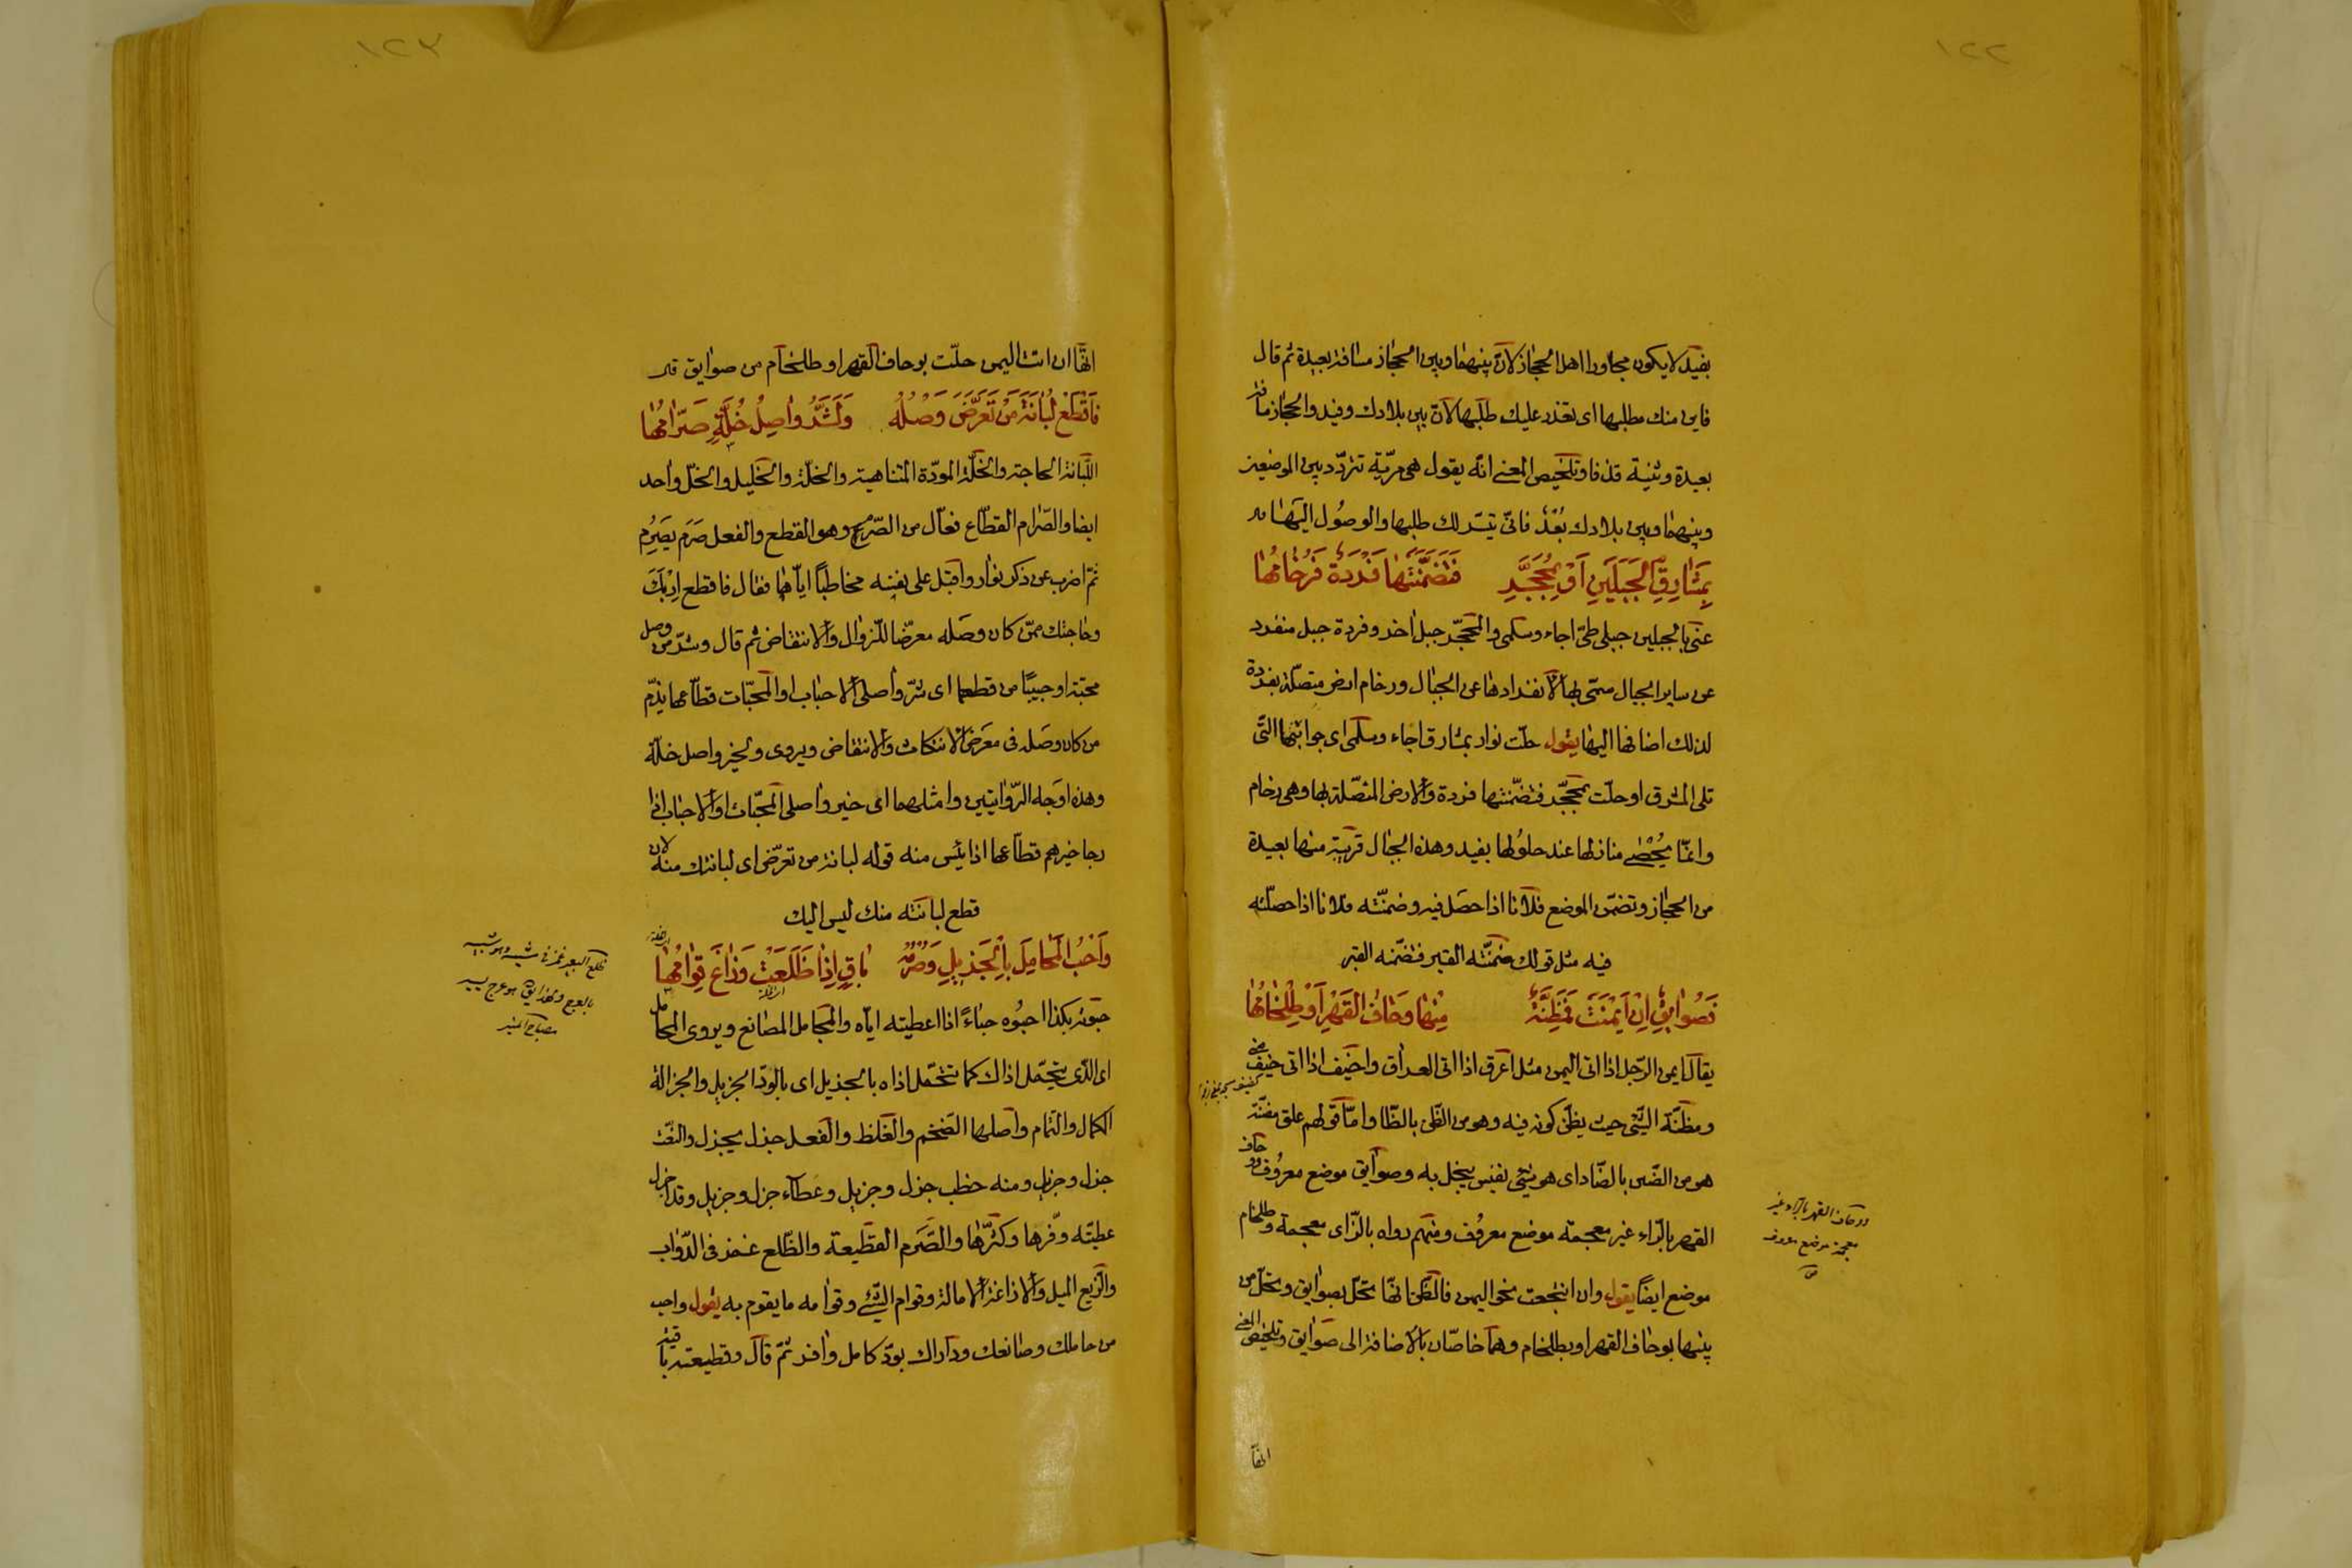 ١٢٢
بفيد لا يكون مجاورا اهل الحجاز لان بينهما وبين الحجاز مسافة بعيدة ثم قال
فاين منك مطلبها اى تعذر عليك طلبها لان بين بلادك وفيد والحجاز مسافة
بعيدة وتلخيص المعنى انه يقول هى مرّيّة تتردّد بين الموضعين
وبينهما وبين بلادك بُعْدٌ فانّى يتيسّر لك طلبها والوصُول اليها
بِمَشارِقِ الجَبَلَيْنِ اَوْ بِمُحَجَّرٍ فَتَضَمَّنَتْها فَرْدَةٌ فَرُخامُها
عنى بالجبلين جبلى طىّ اجاء وسلمى والمحجّر جبل اخر وفردة جبل منفرد
عن ساير الجبال سمّى بها لانفرادها عن الجبال ورخام ارض متصلة بفردة
لذلك اضافها اليها يقول حلّت نوار بمشارق اجاء وسلمى اى جوانبهما التى
تلى المشرق او حلّت بمحجّر فتضمّنتها فردة والارض المتصّلة بها وهى رخام
وانما يُحْصى منازلها عند حلولها بفيد وهذه الجبال قريبة منها بعيدة
من الحجاز وتضمّن الموضع فلانا اذا حصل فيه وضمنّته فلانا اذا حصلّته
فيه مثل قولك ضمنّته القبر فتضمّنه القبر
فَصُوايِقٌ اِنْ اَيْمَنَتْ فَمَظِنَّةٌ مِنْها وِحَافُ القَهْرِ اَوْ طِلْخامُها
يقال ايمن الرّجل اذا اتى اليمن مثل اعرق اذا اتى العراق واخيف اذا اتى خيف منى
ومظنّة الشّئ حيث يظنّ كونه فيه وهو من الظّنّ بالظّا واما قولهم علق مضنّة
هو من الضّن بالضّاد اى هو شئ نفيس يبخل به وصوايق موضع معروُف ووحاف
القهر بالرّاء غير معجمة موضع معروُف ومنهم رواه بالزّاى معجمة وطلخام
موضع ايضًا يقول وان انتجعت نحو اليمن فالظّنّ انّها تحلّ بصوايق وتحلّ من
بينها بوحاف القهر او بطلخام وهما خاصّان بالاضافة الى صوايق وتلخيص المعنى
انها
ووحاف القهر بالراء غير
معجمة موضع معروف
١٢٣
انّها ان اتت اليمن حلّت بوحاف القهر او طلخام من صوايق
فَاقْطَعْ لُبانَةَ مَنْ تَعَرَّضَ وَصْلُهُ وَلَشَرُّ واصِلِ خُلَّةٍ صَرّامُها
اللّبانة الحاجة والخلّة المودّة المتناهية والخلّة والخليل والخلّ واحد
ايضا والصّرام القطّاع فعّال من الصّرم وهو القطع والفعل صَرَم يَصْرِم
ثمّ اضرب عن ذكر نوار واقبل على نفسه مخاطبًا ايّاها فقال فاقطع اِرْبَكَ
وحاجتك ممّن كان وصله معرّضا للزوال والانتقاض ثم قال وشرّ من وصل
محبّة او حبيبًا من قطعها اى شرّ واصلى الاحباب او المحبّات قطّاعها يذمّ
من كان وصله فى معرض الانتكاث والانتقاض ويروى ولخير واصل خلّة
وهذه اوجه الرّوايتين وامثلهما اى خير واصلى المحبّات او الاحباب اذا
رجا خيرهم قطّاعها اذا يئس منه قوله لبانة من تعرّض اى لبانتك منه لان
قطع لبانته منك ليس اليك
وَاَحْبُ المُحامِلَ بِالجَزيلِ وَصُرْمُهُ باقٍ اِذا ظَلَعَتْ وَزاغَ قِوامُها
حبوته بكذا احبُوه حباءً اذا اعطيته ايّاه والمجامل المصانع ويروى المحامل
اى الّذى يتحمّل اذاك كما تتحمّل اذاه بالجزيل اى بالودّ الجزيل والجزالة
الكمال والتمام واصلها الضخم والغلظ والفعل جزل يجزل والنعت
جزل وجزيل ومنه حطب جزل وجزيل وعطاء جزل وجزيل وقد اجزل
عطيّته وفّرها وكثّرها والصّرم القطيعة والظّلع غمز فى الدّواب
والزّيغ الميل والازاغة الامالة وقوام الشّئ وقوامه ما يقوم به يقول واحب
من حاملك وصانعك وداراك بودّ كامل وافر ثمّ قال وقطيعته باقية
ظلع البعير غمز فى مشيه وهو شبيه
بالعرج ولهذا يقال هو عرج يسير
مصباح المنير